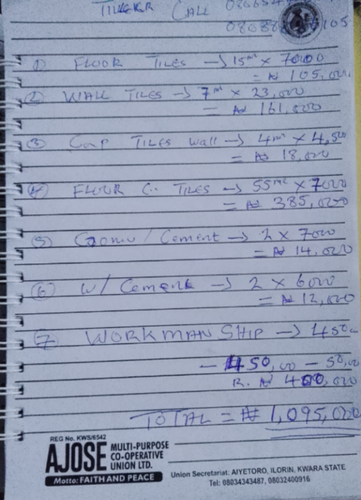 TILER CALL 080
080
① FLOOR TILES → 15m² × 7000
= ₦ 105,000
② WALL TILES → 7m² × 23,000
= ₦ 161,000
③ TILES Wall → 4m² × 4,50
= ₦ 18,000
④ FLOOR C. TILES → 55m² × 7000
= ₦ 385,000
⑤ / Cement → 2 × 7000
= ₦ 14,000
⑥ W/ Cement → 2 × 6000
= ₦ 12,000
⑦ WORKMANSHIP → 450
- 450,00 - 50,00
R. ₦ 400,000
TOTAL = ₦ 1,095,000
REG No. KWS/6542
AJOSE MULTI-PURPOSE
CO-OPERATIVE
UNION LTD.
Motto: FAITH AND PEACE
Union Secretariat: AIYETORO, ILORIN, KWARA STATE
Tel: 08034343487, 08032400916